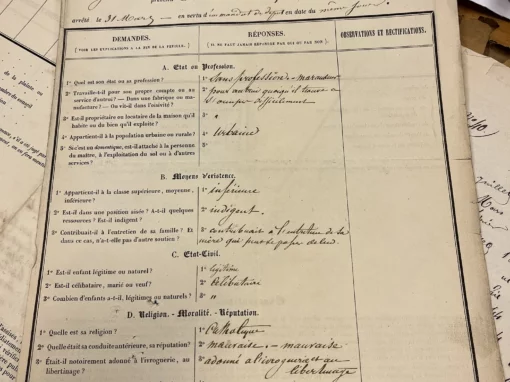 arrêté le 31 Mars, en vertu d'un mandat de dépôt en date du même jour
DEMANDES.
(VOIR LES EXPLICATIONS A LA FIN DE LA FEUILLE.)
RÉPONSES.
(IL NE FAUT JAMAIS RÉPONDRE PAR OUI OU PAR NON.)
OBSERVATIONS ET RECTIFICATIONS.
A. Etat ou Profession.
1° Quel est son état ou sa profession?
1° Sans profession - maraudeur
2° Travaille-t-il pour son propre compte ou au
service d'autrui? — Dans une fabrique ou ma-
nufacture? — Ou vit-il dans l'oisiveté?
2° pour autrui quoiqu'il trouve à
s'occuper
3° Est-il propriétaire ou locataire de la maison qu'il
habite ou du bien qu'il exploite?
3° "
4° Appartient-il à la population urbaine ou rurale?
4° urbaine
5° Si c'est un domestique, est-il attaché à la personne
du maître, à l'exploitation du sol ou à d'autres
services?
5°
B. Moyens d'existence.
1° Appartient-il à la classe supérieure, moyenne,
inférieure?
1° inférieure
2° Est-il dans une position aisée? A-t-il quelques
ressources? Est-il indigent?
2° indigent.
3° Contribuait-il à l'entretien de sa famille? Et
dans ce cas, n'a-t-elle pas d'autre soutien?
3° contribuait à l'entretien de sa
mère qui peut se passer de lui.
C. Etat-Civil.
1° Est-il enfant légitime ou naturel?
1° légitime
2° Est-il célibataire, marié ou veuf?
2° célibataire
3° Combien d'enfants a-t-il, légitimes ou naturels?
3° "
D. Religion. - Moralité. - Réputation.
1° Quelle est sa religion?
1° Catholique
2° Quelle était sa conduite antérieure, sa réputation?
2° mauvaise. - mauvaise
3° Était-il notoirement adonné à l'ivrognerie, au
libertinage?
3° adonné à l'ivrognerie et au
libertinage